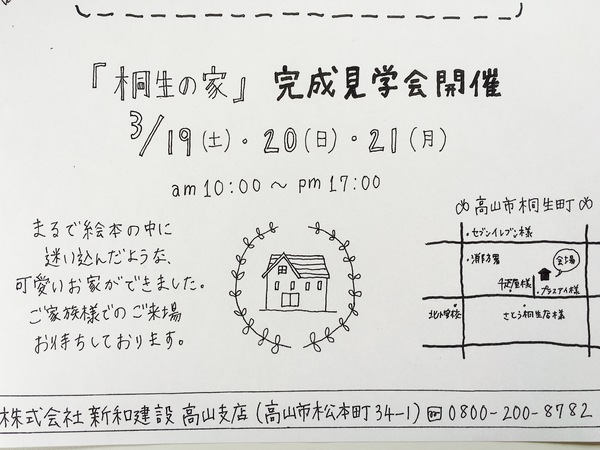 『桐生の家』 完成見学会開催
3/19(土)・20(日)・21(月)
am10:00〜pm17:00
まるで絵本の中に
迷い込んだような、
可愛いお家ができました。
ご家族様でのご来場
お待ちしております。
高山市桐生町
・セブンイレブン様
・消防署
会場
・プラスアイ様
北小学校
さとう桐生店様
株式会社 新和建設 高山支店(高山市松本町34-1) 0800-200-8782